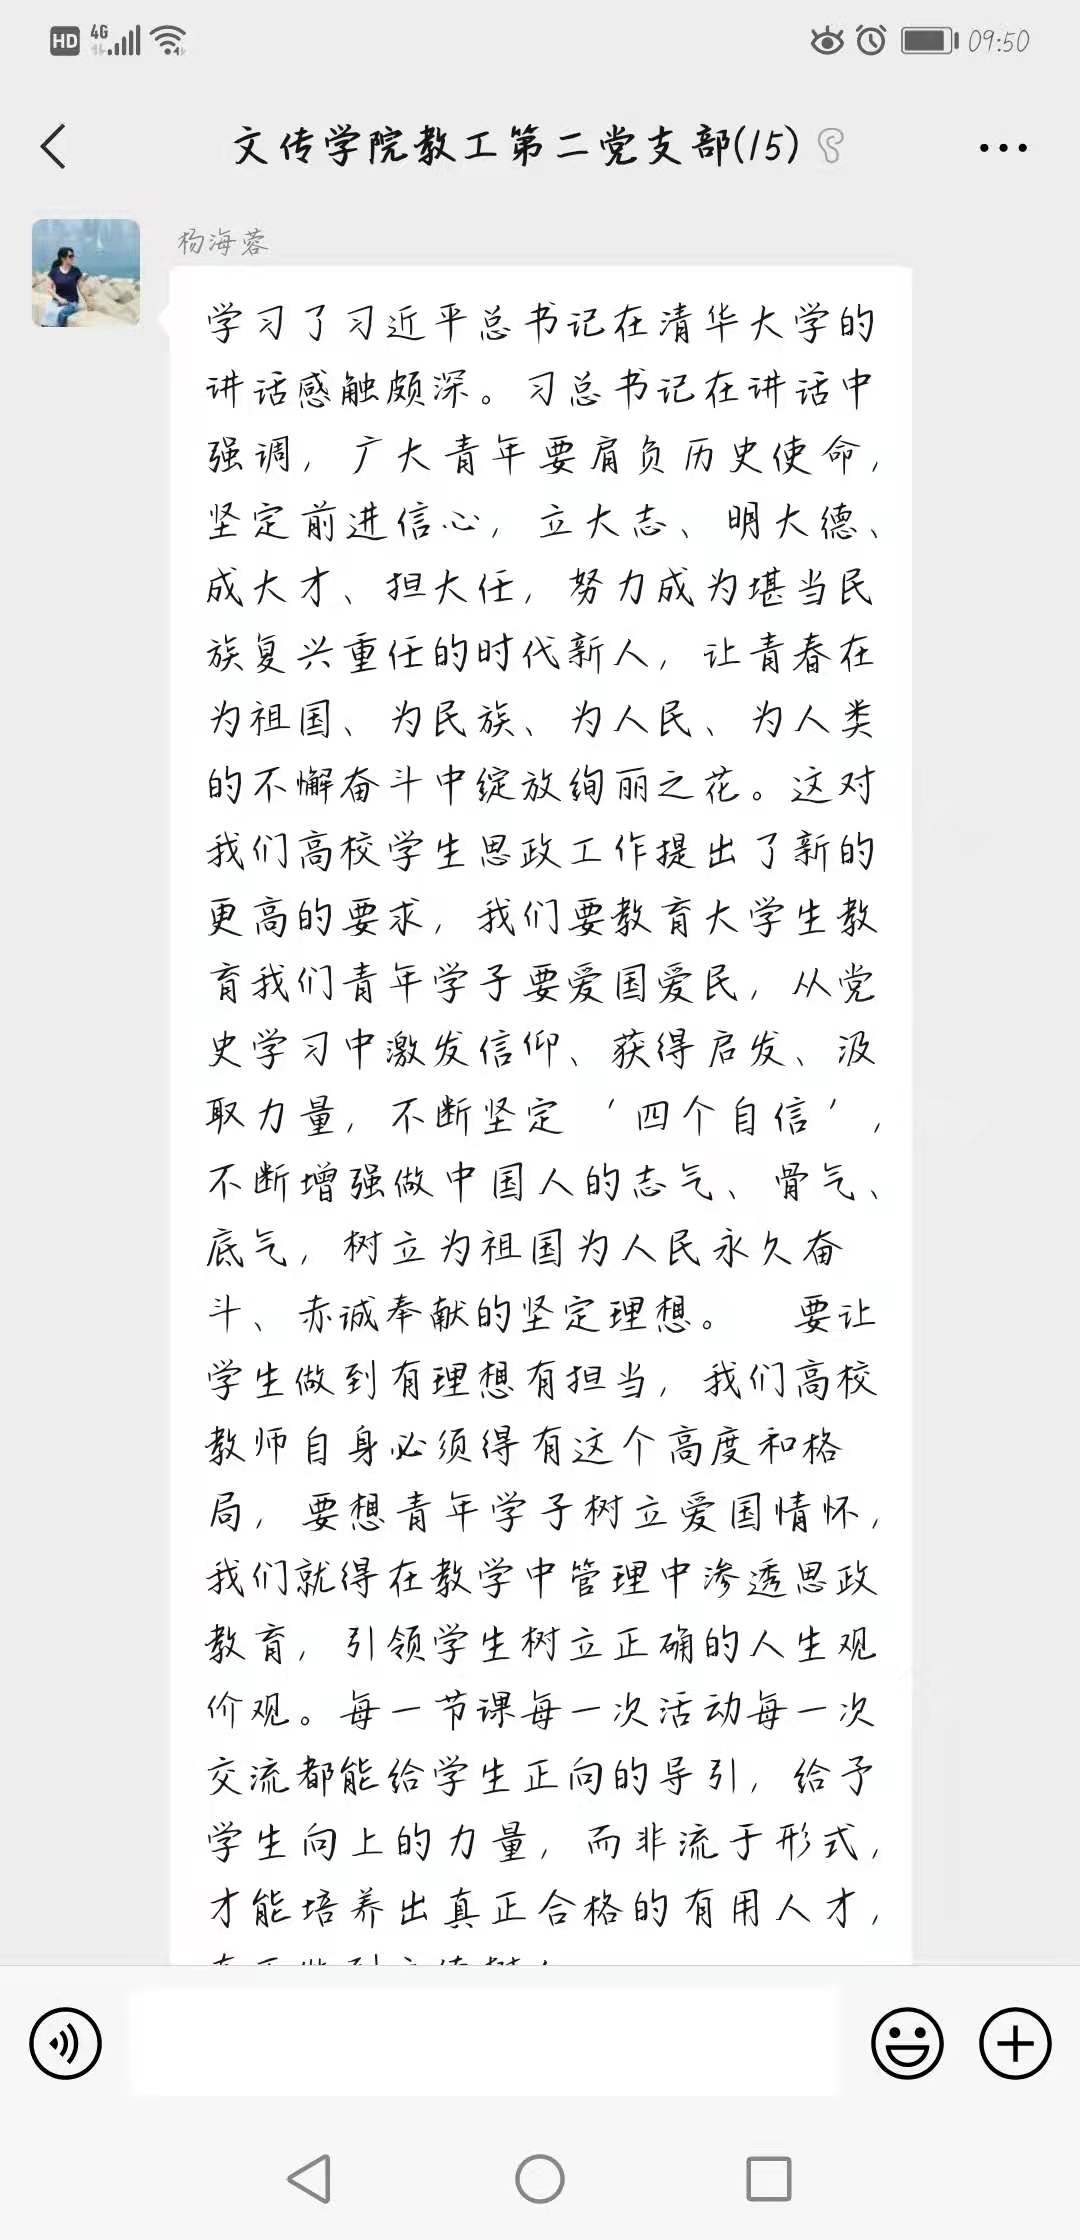 HD 4G 09:50
文传学院教工第二党支部(15)
杨海蓉
学习了习近平总书记在清华大学的
讲话感触颇深。习总书记在讲话中
强调，广大青年要肩负历史使命，
坚定前进信心，立大志、明大德、
成大才、担大任，努力成为堪当民
族复兴重任的时代新人，让青春在
为祖国、为民族、为人民、为人类
的不懈奋斗中绽放绚丽之花。这对
我们高校学生思政工作提出了新的
更高的要求，我们要教育大学生教
育我们青年学子要爱国爱民，从党
史学习中激发信仰、获得启发、汲
取力量，不断坚定 '四个自信'，
不断增强做中国人的志气、骨气、
底气，树立为祖国为人民永久奋
斗、赤诚奉献的坚定理想。 要让
学生做到有理想有担当，我们高校
教师自身必须得有这个高度和格
局，要想青年学子树立爱国情怀，
我们就得在教学中管理中渗透思政
教育，引领学生树立正确的人生观
价观。每一节课每一次活动每一次
交流都能给学生正向的导引，给予
学生向上的力量，而非流于形式，
才能培养出真正合格的有用人才，